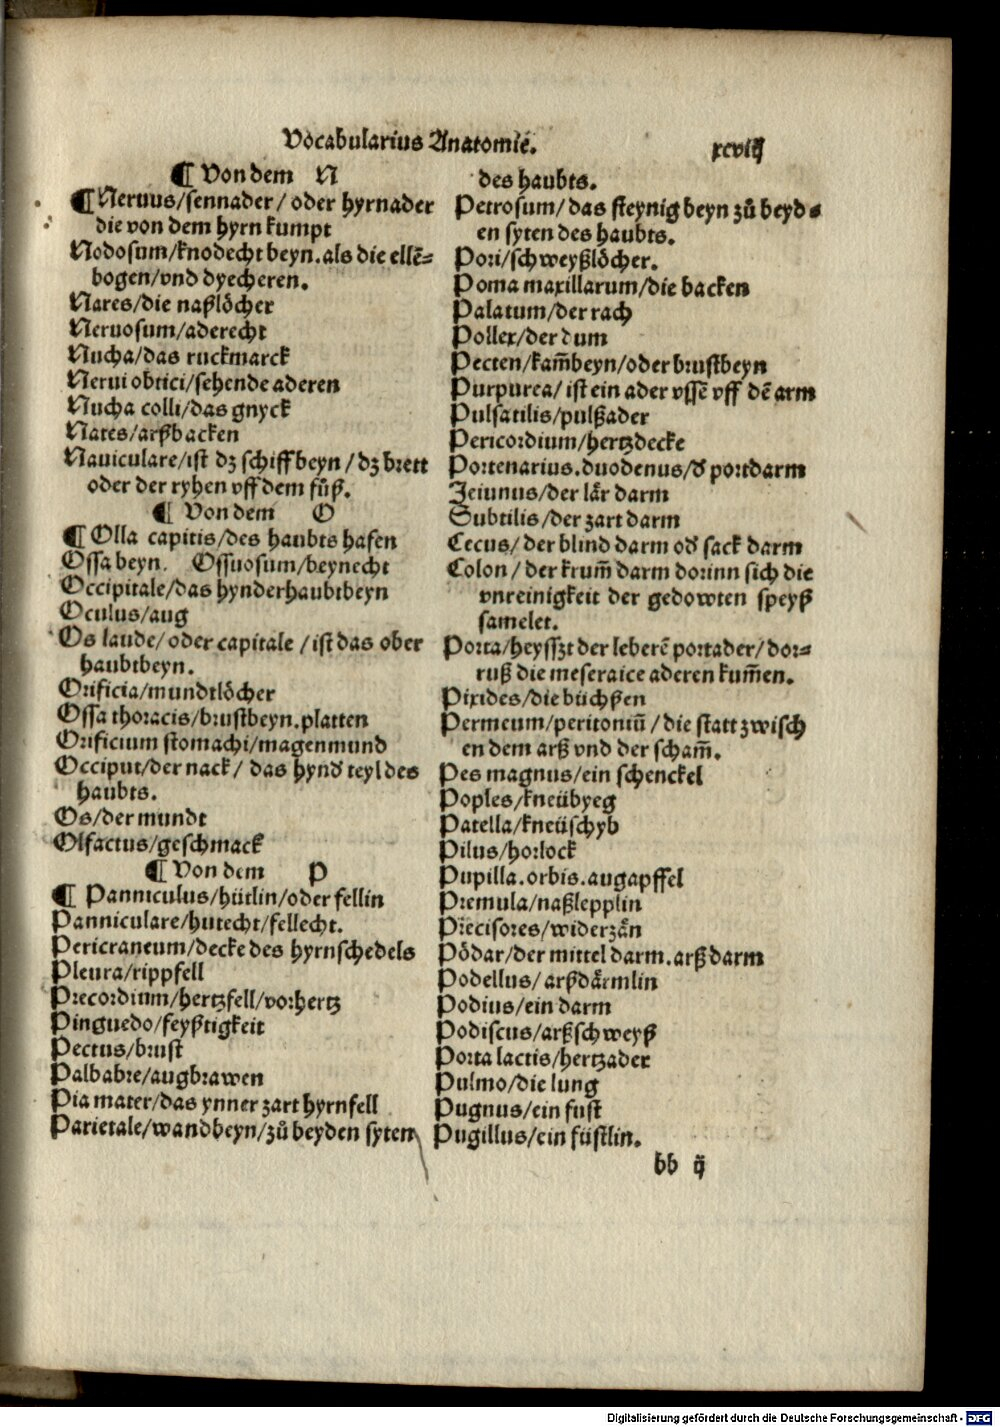 Vocabularius Anatomie.
xcviij
¶ Von dem N
¶ Neruus/sennader/ oder hyrnader
die von dem hyrn kumpt
Nodosum/knodecht beyn.als die ellẽ⸗
bogen/vnd dyecheren.
Nares/die naßlöcher
Neruosum/aderecht
Nucha/das ruckmarck
Nerui obtici/sehende aderen
Nucha colli/das gnyck
Nates/arßbacken
Nauiculare/ist dz schiffbeyn / dz brett
oder der ryhen vff dem fůß.
¶ Von dem O
¶ Olla capitis/des haubts hafen
Ossa beyn. Ossuosum/beynecht
Occipitale/das hynderhaubtbeyn
Oculus/aug
Os laude/ oder capitale /ist das ober
haubtbeyn.
Orificia/mundtlöcher
Ossa thoracis/brustbeyn.platten
Orificium stomachi/magenmund
Occiput/der nack/ das hynd̕ teyl des
haubts.
Os/der mundt
Olfactus/geschmack
¶ Von dem P
¶ Panniculus/hütlin/oder fellin
Panniculare/hutecht/fellecht.
Pericraneum/decke des hyrnschedels
Pleura/rippfell
Precordium/hertzfell/vorhertz
Pinguedo/feyßtigkeit
Pectus/brust
Palbabre/augbrawen
Pia mater/das ynner zart hyrnfell
Parietale/wandbeyn/zů beyden syten
des haubts.
Petrosum/das steynig beyn zů beyd⸗
en syten des haubts.
Pori/schweyßlöcher.
Poma maxillarum/die backen
Palatum/der rach
Pollex/der dum
Pecten/kam̃beyn/oder brustbeyn
Purpurea/ ist ein ader vssẽ vff dẽ arm
Pulsatilis/pulßader
Pericordium/hertzdecke
Portenarius.duodenus/d̕ portdarm
Jeiunus/der lår darm
Subtilis/der zart darm
Cecus/ der blind darm od̕ sack darm
Colon/ der krum̃ darm dorinn sich die
vnreinigkeit der gedowten speyß
samelet.
Porta/heysszt der leberẽ portader/dor⸗
ruß die meseraice aderen kum̃en.
Pixides/die büchßen
Permeum/peritoniũ/die statt zwisch
en dem arß vnd der scham̃.
Pes magnus/ein schenckel
Poples/kneübyeg
Patella/kneüschyb
Pilus/horlock
Pupilla.orbis.augapffel
Premula/naßlepplin
Precisores/widerzån
Pödar/der mittel darm.arß darm
Podellus/ arßdårmlin
Podius/ein darm
Podiscus/arßschweyß
Porta lactis/hertzader
Pulmo/die lung
Pugnus/ein fust
Pugillus/ein füstlin.
bb ij
Digitalisierung gefördert durch die Deutsche Forschungsgemeinschaft - DFG